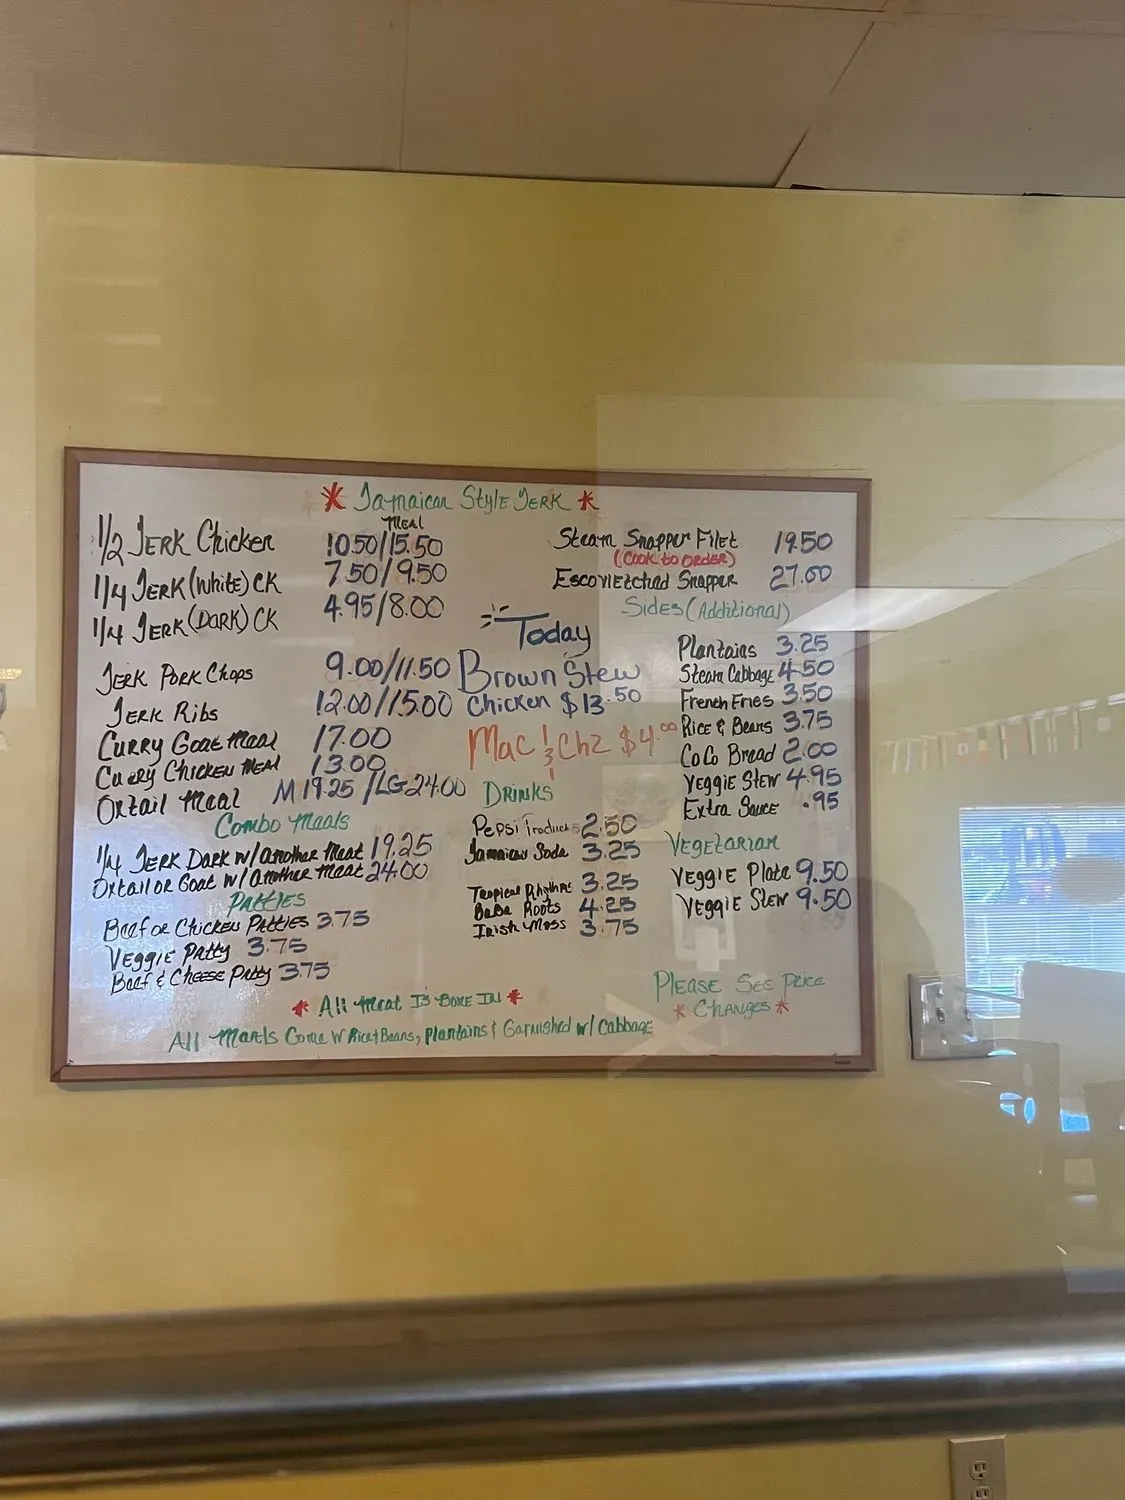 * Jamaican Style Jerk *
Meal
1/2 Jerk Chicken 10.50/15.50
1/4 Jerk (White) CK 7.50/9.50
1/4 Jerk (Dark) CK 4.95/8.00
Jerk Pork Chops 9.00/11.50
Jerk Ribs 12.00/15.00
Curry Goat Meal 17.00
Curry Chicken Meal 13.00
Oxtail Meal M 19.25 / LG 24.00
Combo Meals
1/4 Jerk Dark w/ Another Meat 19.25
Oxtail or Goat w/ Another Meat 24.00
Patties
Beef or Chicken Patties 3.75
Veggie Patty 3.75
Beef & Cheese Patty 3.75
Today
Brown Stew
Chicken $13.50
Mac & Chz $4.00
Drinks
Pepsi Products 2.50
Jamaican Soda 3.25
Tropical Rhythms 3.25
Baba Roots 4.25
Irish Moss 3.75
Steam Snapper Filet 19.50
(Cook to Order)
Escovietched Snapper 27.00
Sides (Additional)
Plantains 3.25
Steam Cabbage 4.50
French Fries 3.50
Rice & Beans 3.75
CoCo Bread 2.00
Veggie Stew 4.95
Extra Sauce .95
Vegetarian
Veggie Plate 9.50
Veggie Stew 9.50
Please See Price
* Changes *
* All Meat Is Bone In *
All Meals Come w Rice & Beans, Plantains & Garnished w/ Cabbage